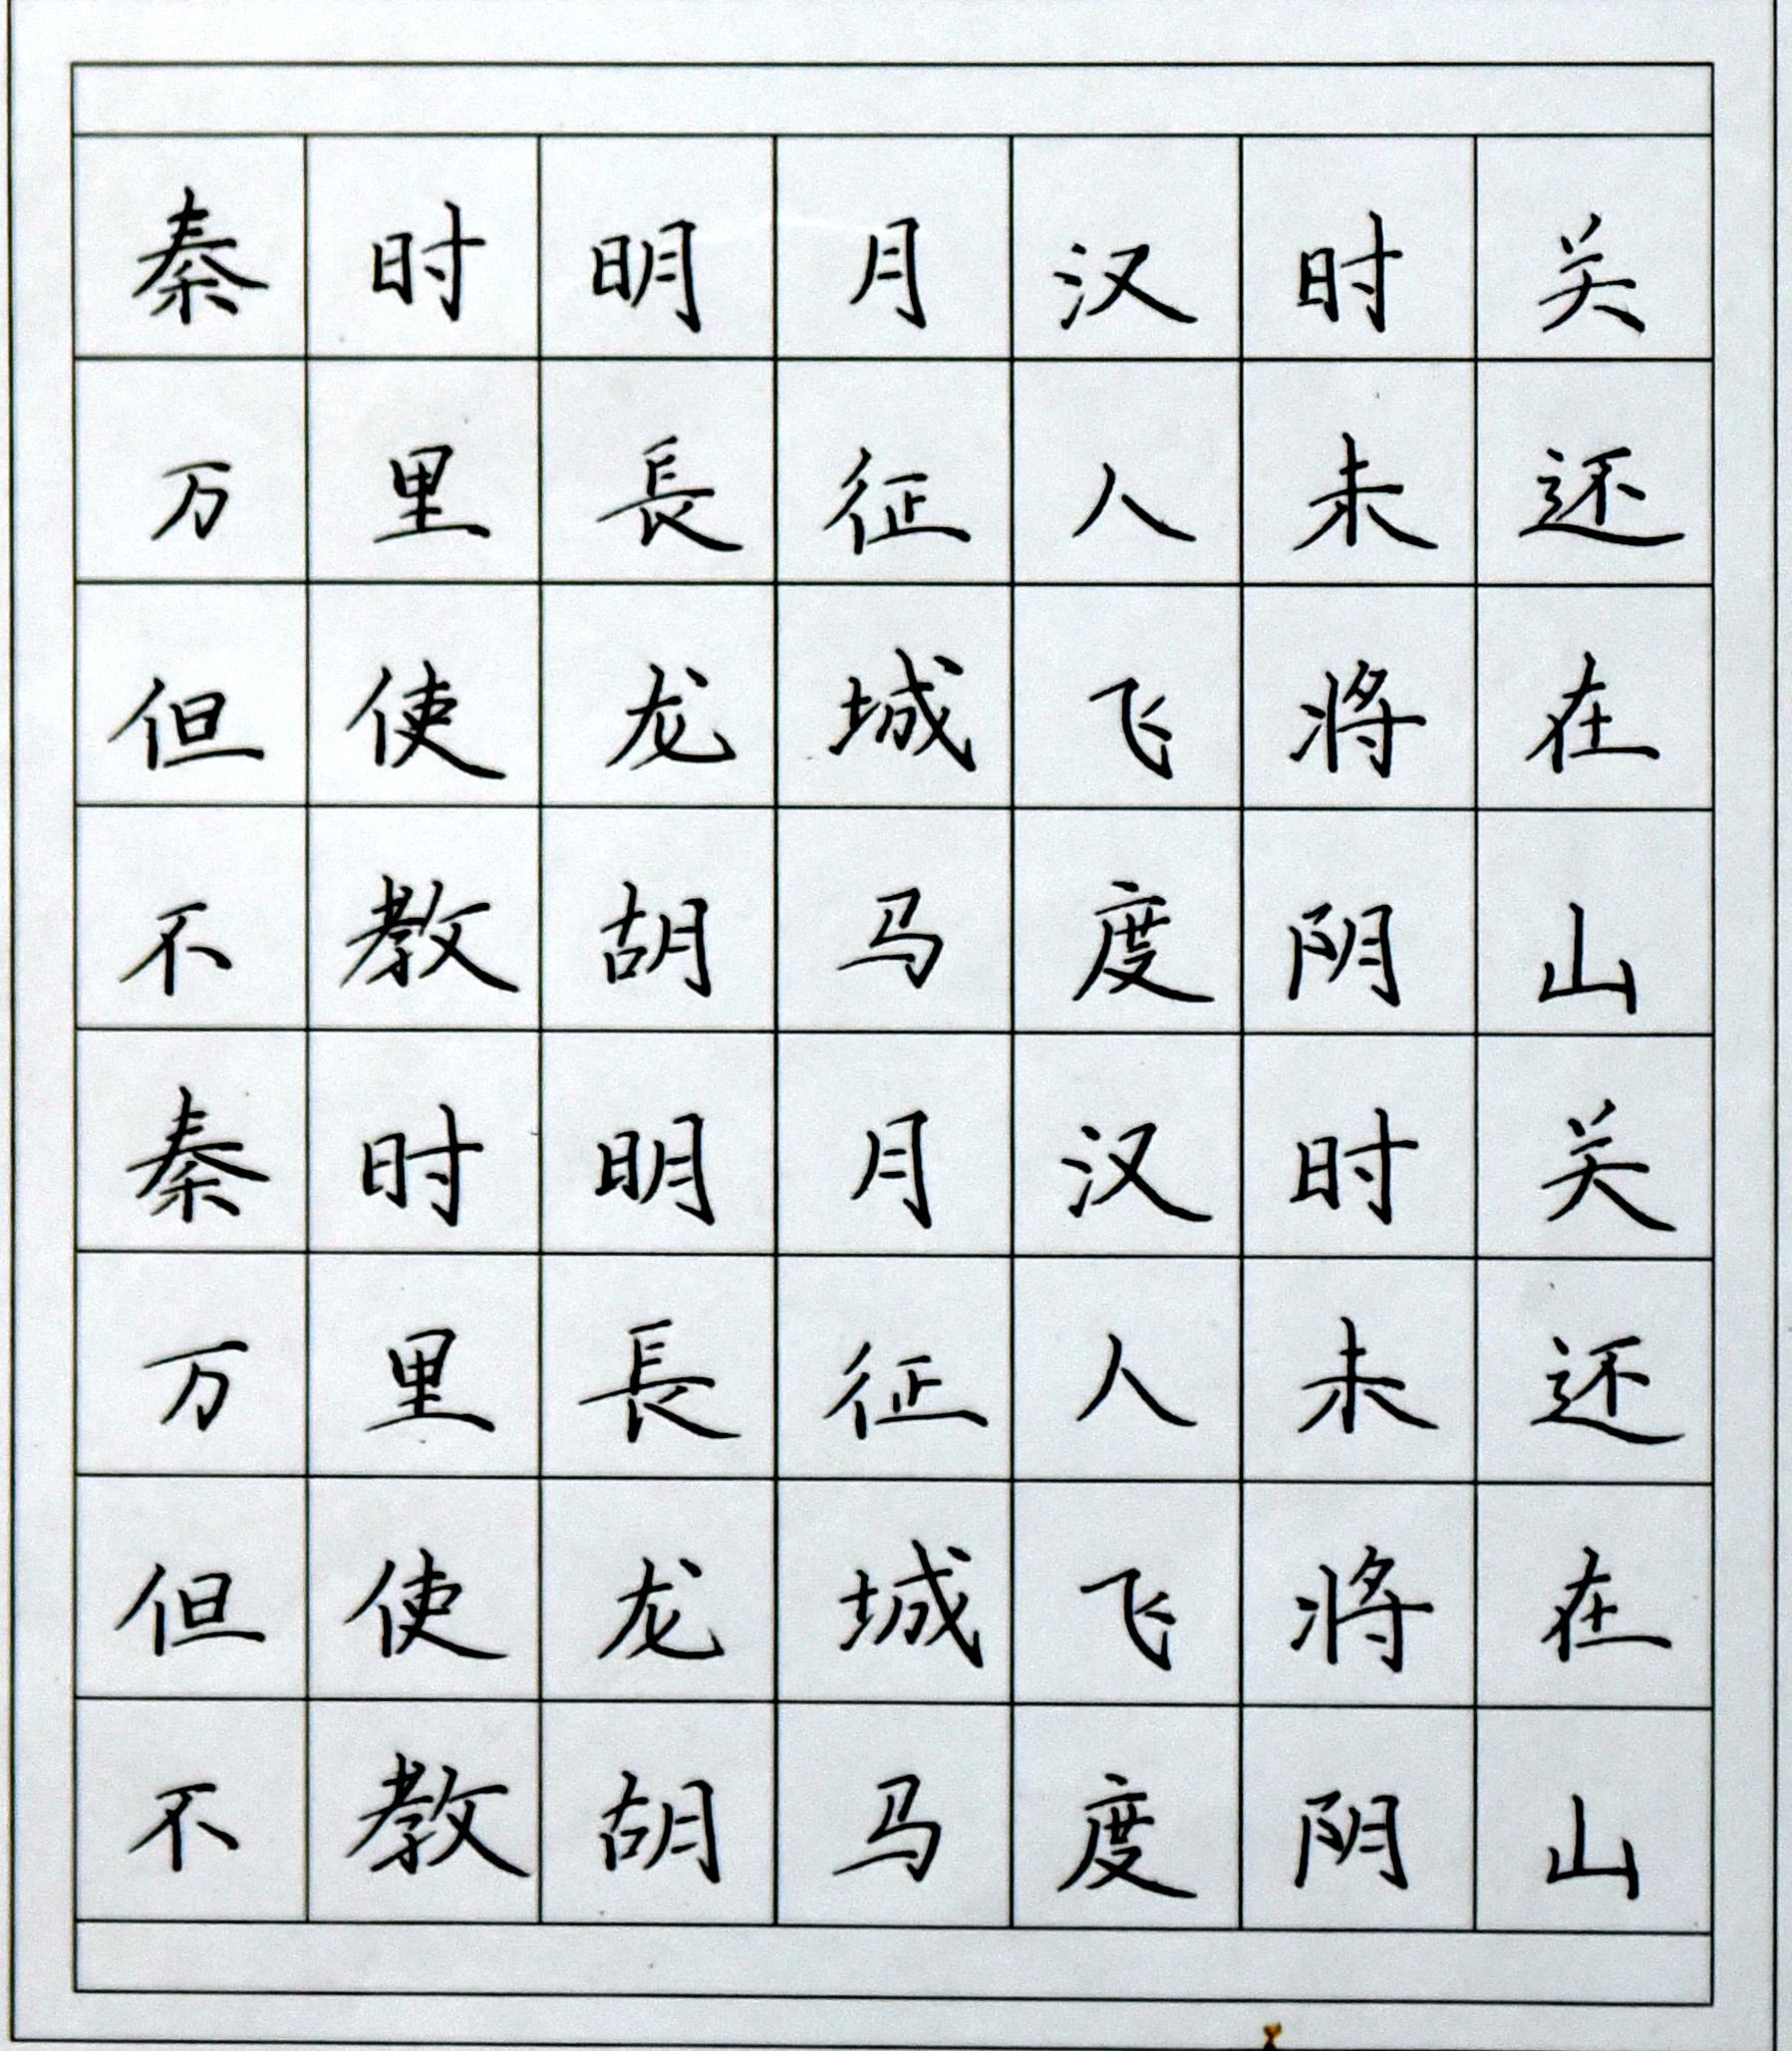 秦时明月汉时关
万里長征人未还
但使龙城飞将在
不教胡马度阴山
秦时明月汉时关
万里長征人未还
但使龙城飞将在
不教胡马度阴山